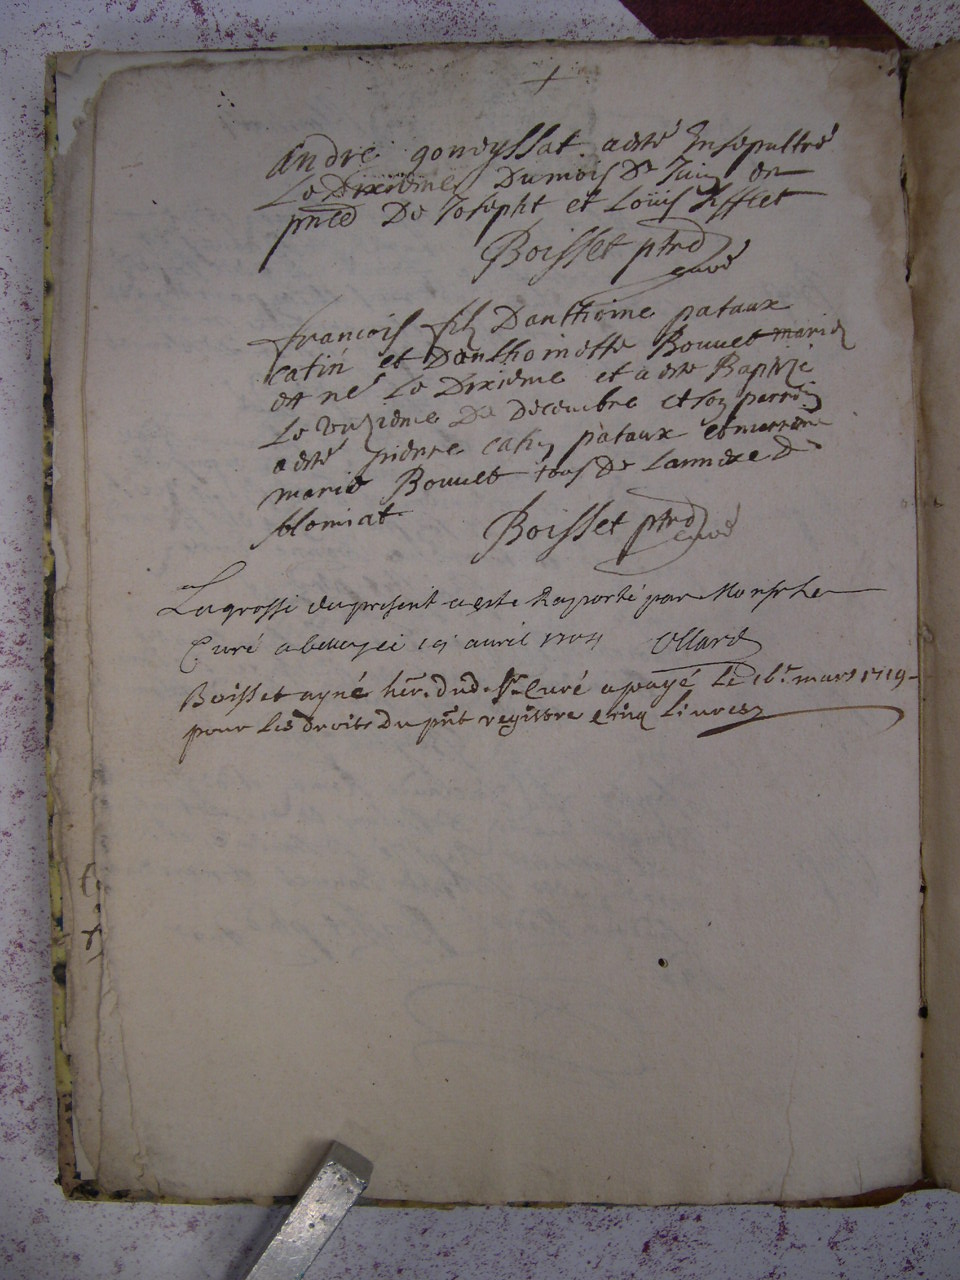 +
andre goneyssat a esté Ensepultré
Le Dixieme Du mois De Juin en
pnce De Josepht et Louis Jffeet
Boisset ptre
curé
francois fils Danthoine pataux
catin et Danthoinette Bouuet
est né Le Dixieme et a este Baptizé
Le onzieme De Decembre et son parrein
a esté pierre catin pataux et marrene
marie Bouuet tous De Lannexe De
blomiat
Boisset ptre
curé
La grosse du present a este Raporté par Monsr Le
Curé a belley ce 19 avril 1704 Ollard
Boisset ayné her. dud. Sr. Curé a payé Le 16r. mars 1719
pour Les droits du pnt registre cinq Liures